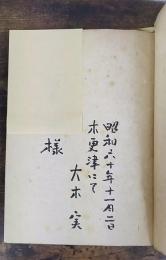 昭和六十年十一月二日
木更津にて
大木実
様